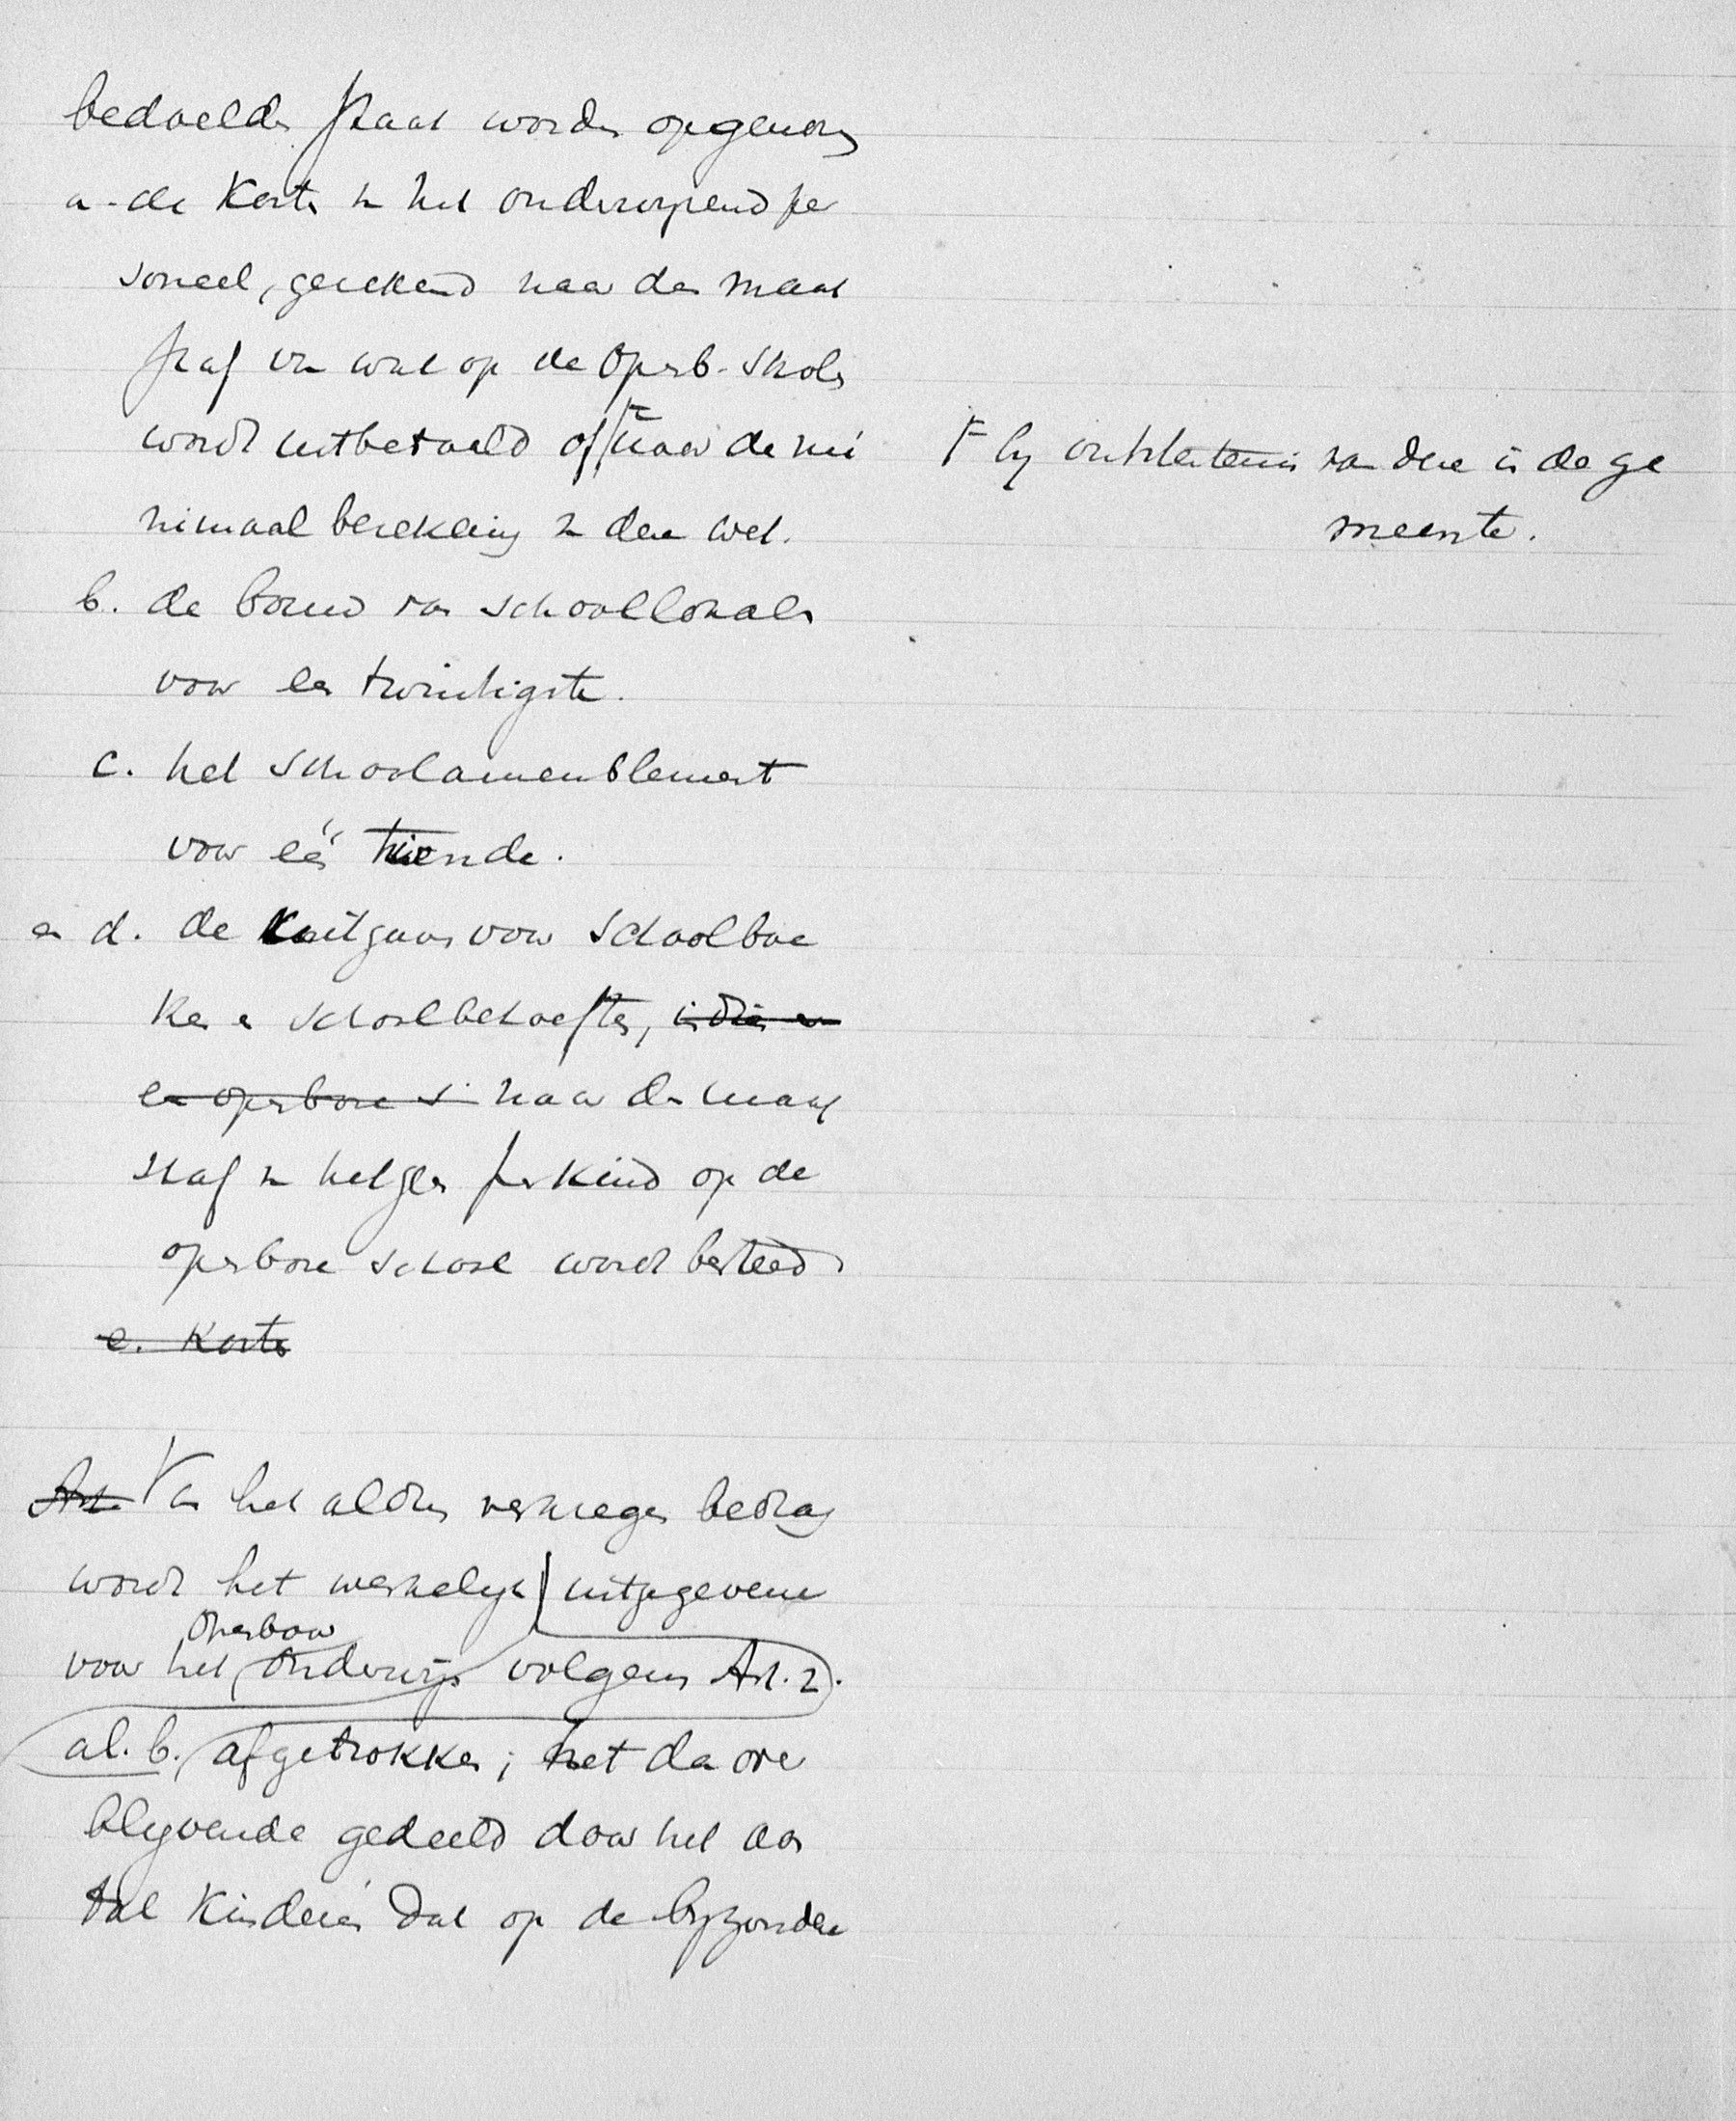 bedoelde staat worden opgenomen
a. de Kosten van het onderwijzend per
soneel, gerekend naar den maat
staf van wat op de Openb. Scholen
wordt uitbetaald of F naar de mi
nimaal berekening van deze wet.
F by ontstentenis van deze in de ge
meente.
b. de bouw van schoollokalen
voor een twintigste.
c. het Schoolameublement
voor één tiende.
en d. de uitgaven voor Schoolboe
ken en schoolbehoeften, indien er
een openbare is naar den maat
staf van hetgeen per Kind op de
openbare school wordt besteed
e. Kosten
Art. Van het aldus verkregen bedrag
wordt het werkelyk uitgegevene
voor het Openbaar Onderwijs volgens Art. 2.
al. b. afgetrokken; het dan over
blyvende gedeeld door het aan
tal Kinderen dat op de byzondere